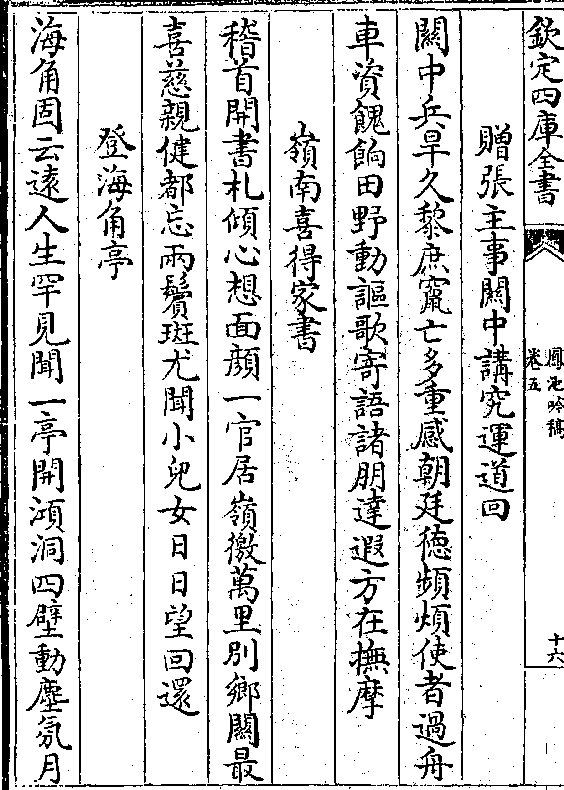 欽定四庫全書
鳳池吟稿
卷五
十六
贈張主事關中講究運道回
關中兵旱久黎庶竄亡多重感朝廷德頻煩使者過舟
車資餽餉田野動謳歌寄語諸朋達遐方在撫摩
嶺南喜得家書
稽首開書札傾心想面顔一官居嶺徼萬里別鄉關最
喜慈親健都忘兩鬢斑尤聞小兒女日日望回還
登海角亭
海角固云遠人生罕見聞一亭開澒洞四壁動塵氛月